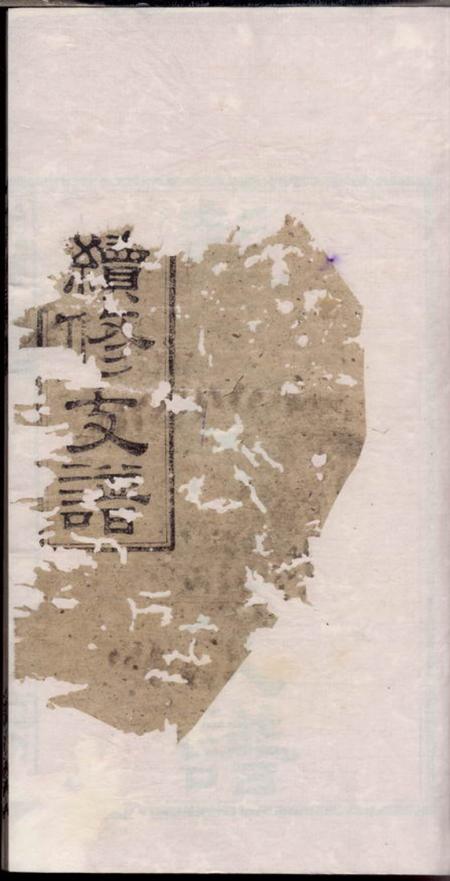 續修支譜